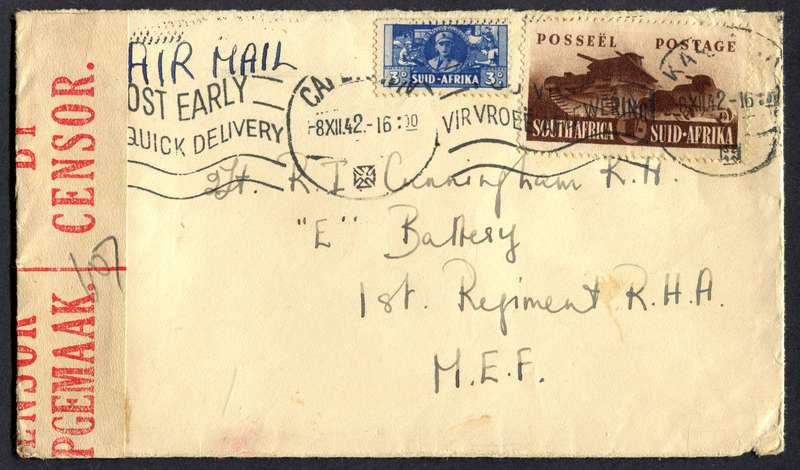 AIR MAIL
POST EARLY
QUICK DELIVERY
8XII.42.-16:00
VIR VROEË
3D SUID-AFRIKA 3D
POSSEËL POSTAGE
SOUTH AFRICA SUID-AFRIKA
8XII.42.-16:00
2/Lt. R I Cunningham R.H.
"E" Battery
1st. Regiment R.H.A.
M.E.F.
BY
CENSOR.
107
ENSOR
PGEMAAK.